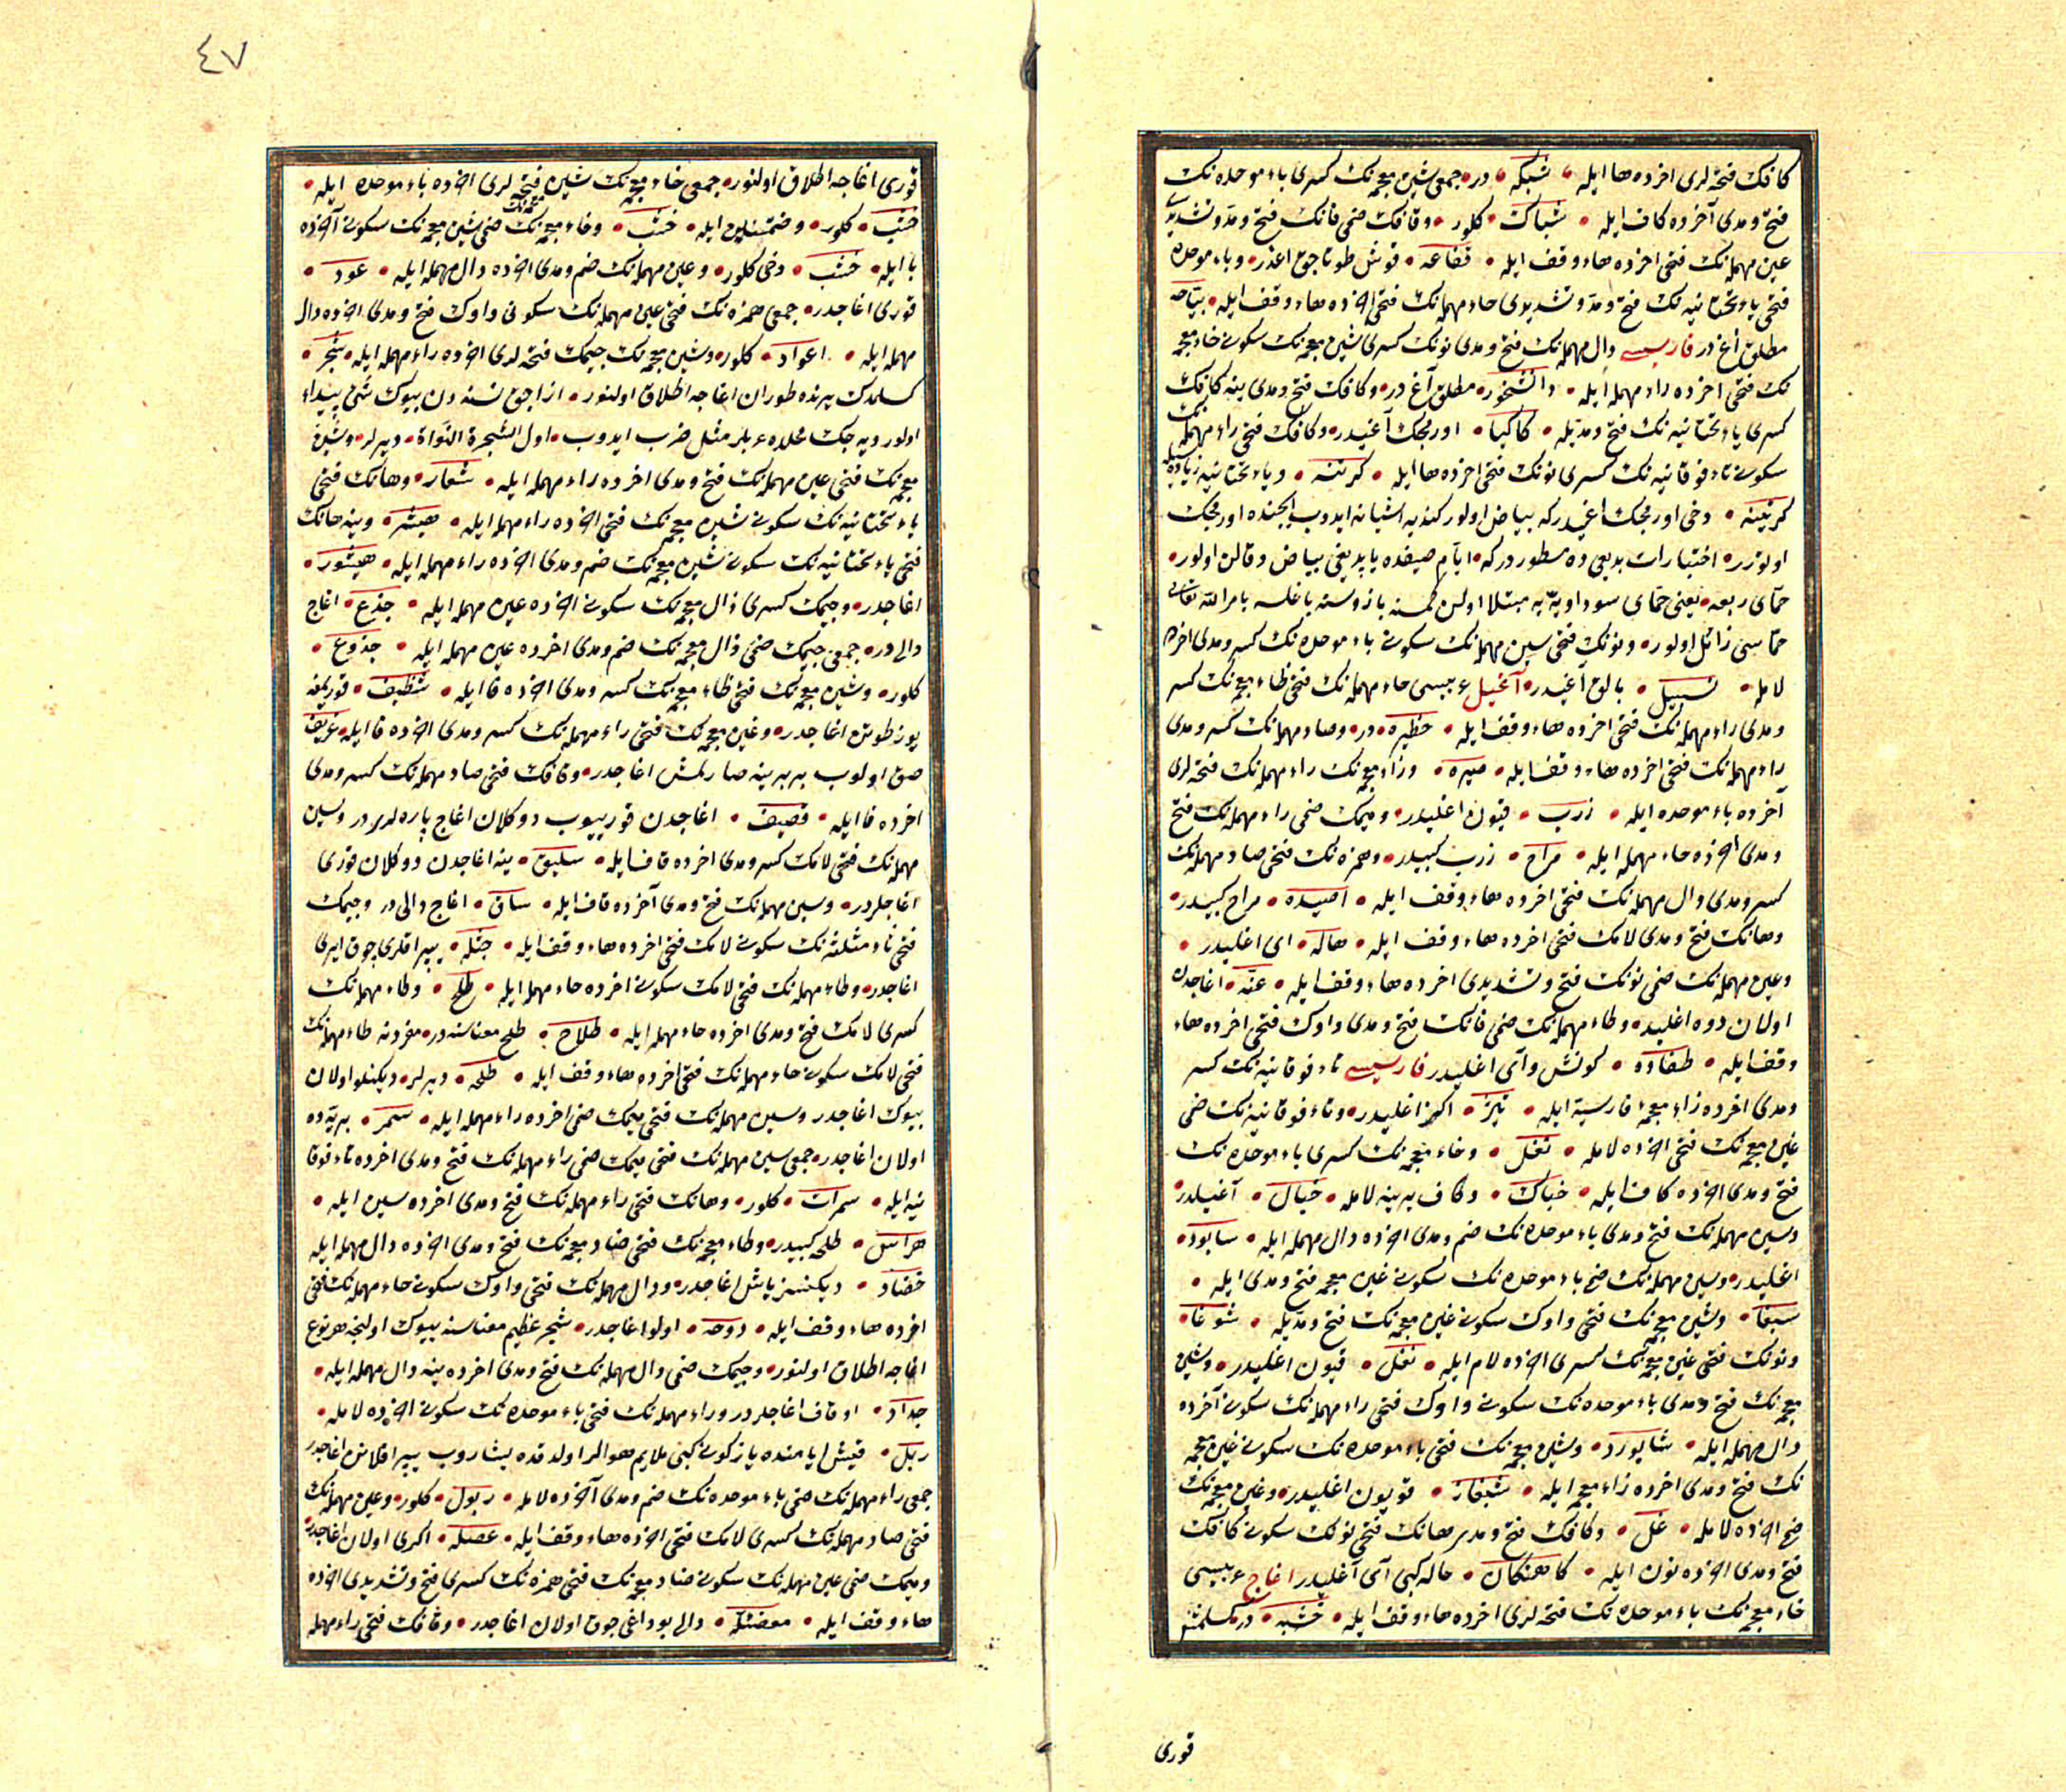 كافك فتحه لرى اخرده ها ايله شبكه در جمعى شين معجمه نك كسرى باء موحده نك
فتح و مدى آخرده كاف ايله شباك كلور و قافك ضمى فانك فتح و مد و تشديدى
عين مهمله نك فتحى اخرده هاء وقف ايله قفاعه قوش طوتاجق اغدر و باء موحده
فتحى ياء تحتانيه نك فتح و مد و تشديدى حاء مهمله نك فتحى اخرده هاء وقف ايله بياحه
مطلق اغدر فارسيسى دال مهمله نك فتح و مدى نونك كسرى شين معجمه نك سكونى خاء معجمه
نك فتحى اخرده راء مهمله ايله دانشخور مطلق آغدر و كافك فتح و مدى ينه كافك
كسرى ياء تحتانيه نك فتح و مديله كاكيا اورمجك آغيدر و كافك فتحى راء مهمله نك
سكونى تاء فوقانيه نك كسرى نونك فتحى اخرده ها ايله كرتنه و ياء تحتانيه زياده سيله
كرتينه دخى اورمجك اغيدر كه بياض اولور كنديه اشيانه ايدوب ايجنده اورمجك
اوتورر اختيارات بديعى ده مسطوردر كه ايام صيفده يابديغى بياض و قالن اولور
حماى ربعه يعنى حماى سوداويه يه مبتلا اولن كمسنه بازوسنه باغلسه بامر الله تعالى
حماسى زائل اولور و نونك فتحى سين مهمله نك سكونى باء موحده نك كسر و مدى اخرده
لامله نسبيل بالق آغيدر آغيل عربيسى حاء مهمله نك فتحى ظاء معجمه نك كسر
و مدى راء مهمله نك فتحى اخرده هاء وقف ايله حظيره در و صاد مهمله نك كسر و مدى
راء مهمله نك فتحى اخرده هاء وقف ايله صيره و زاء معجمه نك راء مهمله نك فتحه لرى
آخرده باء موحده ايله زرب قيون اغليدر و ميمك ضمى راء مهمله نك فتح
و مدى اخرده حاء مهمله ايله مراح زرب كبيدر و همزه نك فتحى صاد مهمله نك
كسر و مدى دال مهمله نك فتحى اخرده هاء وقف ايله اصيده مراح كبيدر
و هانك فتح و مدى لامك فتحى اخرده هاء وقف ايله هاله اى اغليدر
و عين مهمله نك ضمى نونك فتح و تشديدى اخرده هاء وقف ايله عنه اغاجدن
اولان دوه اغليدر و طاء مهمله نك ضمى فانك فتح و مدى واوك فتحى اخرده هاء
وقف ايله طفاوه كونش و آى اغليدر فارسيسى تاء فوقانيه نك كسر
و مدى اخرده زاء معجمه فارسيه ايله تيژ اكز اغليدر و تاء فوقانيه نك ضمى
غين معجمه نك فتحى اخرده لامله تغل و خاء معجمه نك كسرى باء موحده نك
فتح و مدى اخرده كاف ايله خباك و كاف يرينه لامله خبال آغيلدر
و سين مهمله نك فتح و مدى باء موحده نك ضم و مدى اخرده دال مهمله ايله سابود
اغليدر و سين مهمله نك ضم باء موحده نك سكونى غين معجمه فتح و مدى ايله
سبغا و شين معجمه نك فتحى واوك سكونى غين معجمه نك فتح و مديله شوغا
و نونك فتحى غين معجمه نك كسرى اخرده لام ايله نغل قيون اغليدر و شين
معجمه نك فتح و مدى باء موحده نك سكونى واوك فتحى راء مهمله نك سكونى آخرده
دال مهمله ايله شابورد و شين معجمه نك فتحى باء موحده نك سكونى غين معجمه
نك فتح و مدى اخرده زاء معجمه ايله شبغاز قويون اغليدر و غين معجمه نك
ضم اخرده لامله غل و كافك فتح و مد يرهانك فتحى نونك سكونى كافك
فتح و مدى اخرده نون ايله كاهنكان هاله كبى آى آغليدر اغاج عربيسى
خاء معجمه نك باء موحده نك فتحه لرى اخرده هاء وقف ايله خشبه در كسلمش
قورى
٤٧
قورى اغاجه اطلاق اولنور جمعى خاء معجمه نك شين فتحه لرى اخرده باء موحده ايله
خشب كلور و ضمتينله ايله خشب و خاء معجمه نك ضمى شين معجمه نك سكونى آخرده
با ايله خشب دخى كلور و عين مهمله نك ضم و مدى اخرده دال مهمله ايله عود
قورى اغاجدر جمعى همزه نك فتحى عين مهمله نك سكونى واوك فتح و مدى اخرده دال
مهمله ايله اعواد كلور و شين معجمه نك جيمك فتحه لرى اخرده راء مهمله ايله شجر
كسلمدك يرنده طوران اغاجه اطلاق اولنور ازاجق نسنه دن بيوك شى پيداء
اولور ديه جك محلده عربلر مثل ضرب ايدوب اول الشجرة النواة ديرلر و شين
معجمه نك فتحى عين مهمله نك فتح و مدى اخرده راء مهمله ايله شعار و هانك فتحى
ياء تحتانيه نك سكونى شين معجمه نك فتحى اخرده راء مهمله ايله هيشر و ينه هانك
فتحى ياء تحتانيه نك سكونى شين معجمه نك ضم و مدى اخرده راء مهمله ايله هيشور
اغاجدر و جيمك كسرى ذال معجمه نك سكونى اخرده عين مهمله ايله جذع اغاج
داليدر جمعى جيمك ضمى ذال معجمه نك ضم و مدى اخرده عين مهمله ايله جذوع
كلور و شين معجمه نك فتحى ظاء معجمه نك كسر و مدى اخرده فا ايله شظيف قوريلغه
يوز طوتن اغاجدر و غين معجمه نك فتحى راء مهمله نك كسر و مدى اخرده فا ايله غريف
صق اولوب بربرينه صارلمش اغاجدر و قافك فتحى صاد مهمله نك كسر و مدى
اخرده فا ايله قصيف اغاجدن قوريوب دوكلان اغاج پاره لريدر و سين
مهمله نك فتحى لامك كسر و مدى اخرده قاف ايله سليق ينه اغاجدن دوكلان قورى
اغاجلردر و سين مهمله نك فتح و مدى آخرده قاف ايله ساق اغاج داليدر و جيمك
فتحى ثاء مثلثه نك سكونى لامك فتحى اخرده هاء وقف ايله جثله يپراقلرى چوق ايرى
اغاجدر و طاء مهمله نك فتحى لامك سكونى اخرده حاء مهمله ايله طلح و طاء مهمله نك
كسرى لامك فتح و مدى اخرده حاء مهمله ايله طلاح طلح معناسنه در مفردنه طاء مهمله نك
فتحى لامك سكونى حاء مهمله نك فتحى اخرده هاء وقف ايله طلحه ديرلر ديكنلو اولان
بيوك اغاجدر و سين مهمله نك فتحى ميمك ضمى اخرده راء مهمله ايله سمر بريه ده
اولان اغاجدر جمعى سين مهمله نك فتحى ميمك ضمى راء مهمله نك فتح و مدى اخرده تاء فوقا
نيه ايله سمرات كلور و هانك فتحى راء مهمله نك فتح و مدى اخرده سين ايله
هراس طلحه كبيدر و خاء معجمه نك فتحى ضاد معجمه نك فتح و مدى اخرده دال مهمله ايله
خضاد ديكنسز ياش اغاجدر و دال مهمله نك فتحى واوك سكونى حاء مهمله نك فتحى
اخرده هاء وقف ايله دوحه اولو اغاجدر شجر عظيم معناسنه بيوك اولنجه هر نوع
اغاجه اطلاق اولنور و جيمك ضمى دال مهمله نك فتح و مدى اخرده ينه دال مهمله ايله
جداد اوفاق اغاجلردر و راء مهمله نك فتحى باء موحده نك سكونى اخرده لامله
ربل قيش ايامنده ياز كونى كبى ملايم هوالر اولدقده يشاروب يپراقلانن اغاجدر
جمعى راء مهمله نك ضمى باء موحده نك ضم و مدى آخرده لامله ربول كلور و عين مهمله نك
فتحى صاد مهمله نك كسرى لامك فتحى اخرده هاء وقف ايله عصله اكرى اولان اغاجدر
و ميمك ضمى عين مهمله نك سكونى ضاد معجمه نك فتحى همزه نك كسرى فتح و تشديدى اخرده
هاء وقف ايله معضئله دالى بوداغى چوق اولان اغاجدر و قافك فتحى راء مهمله